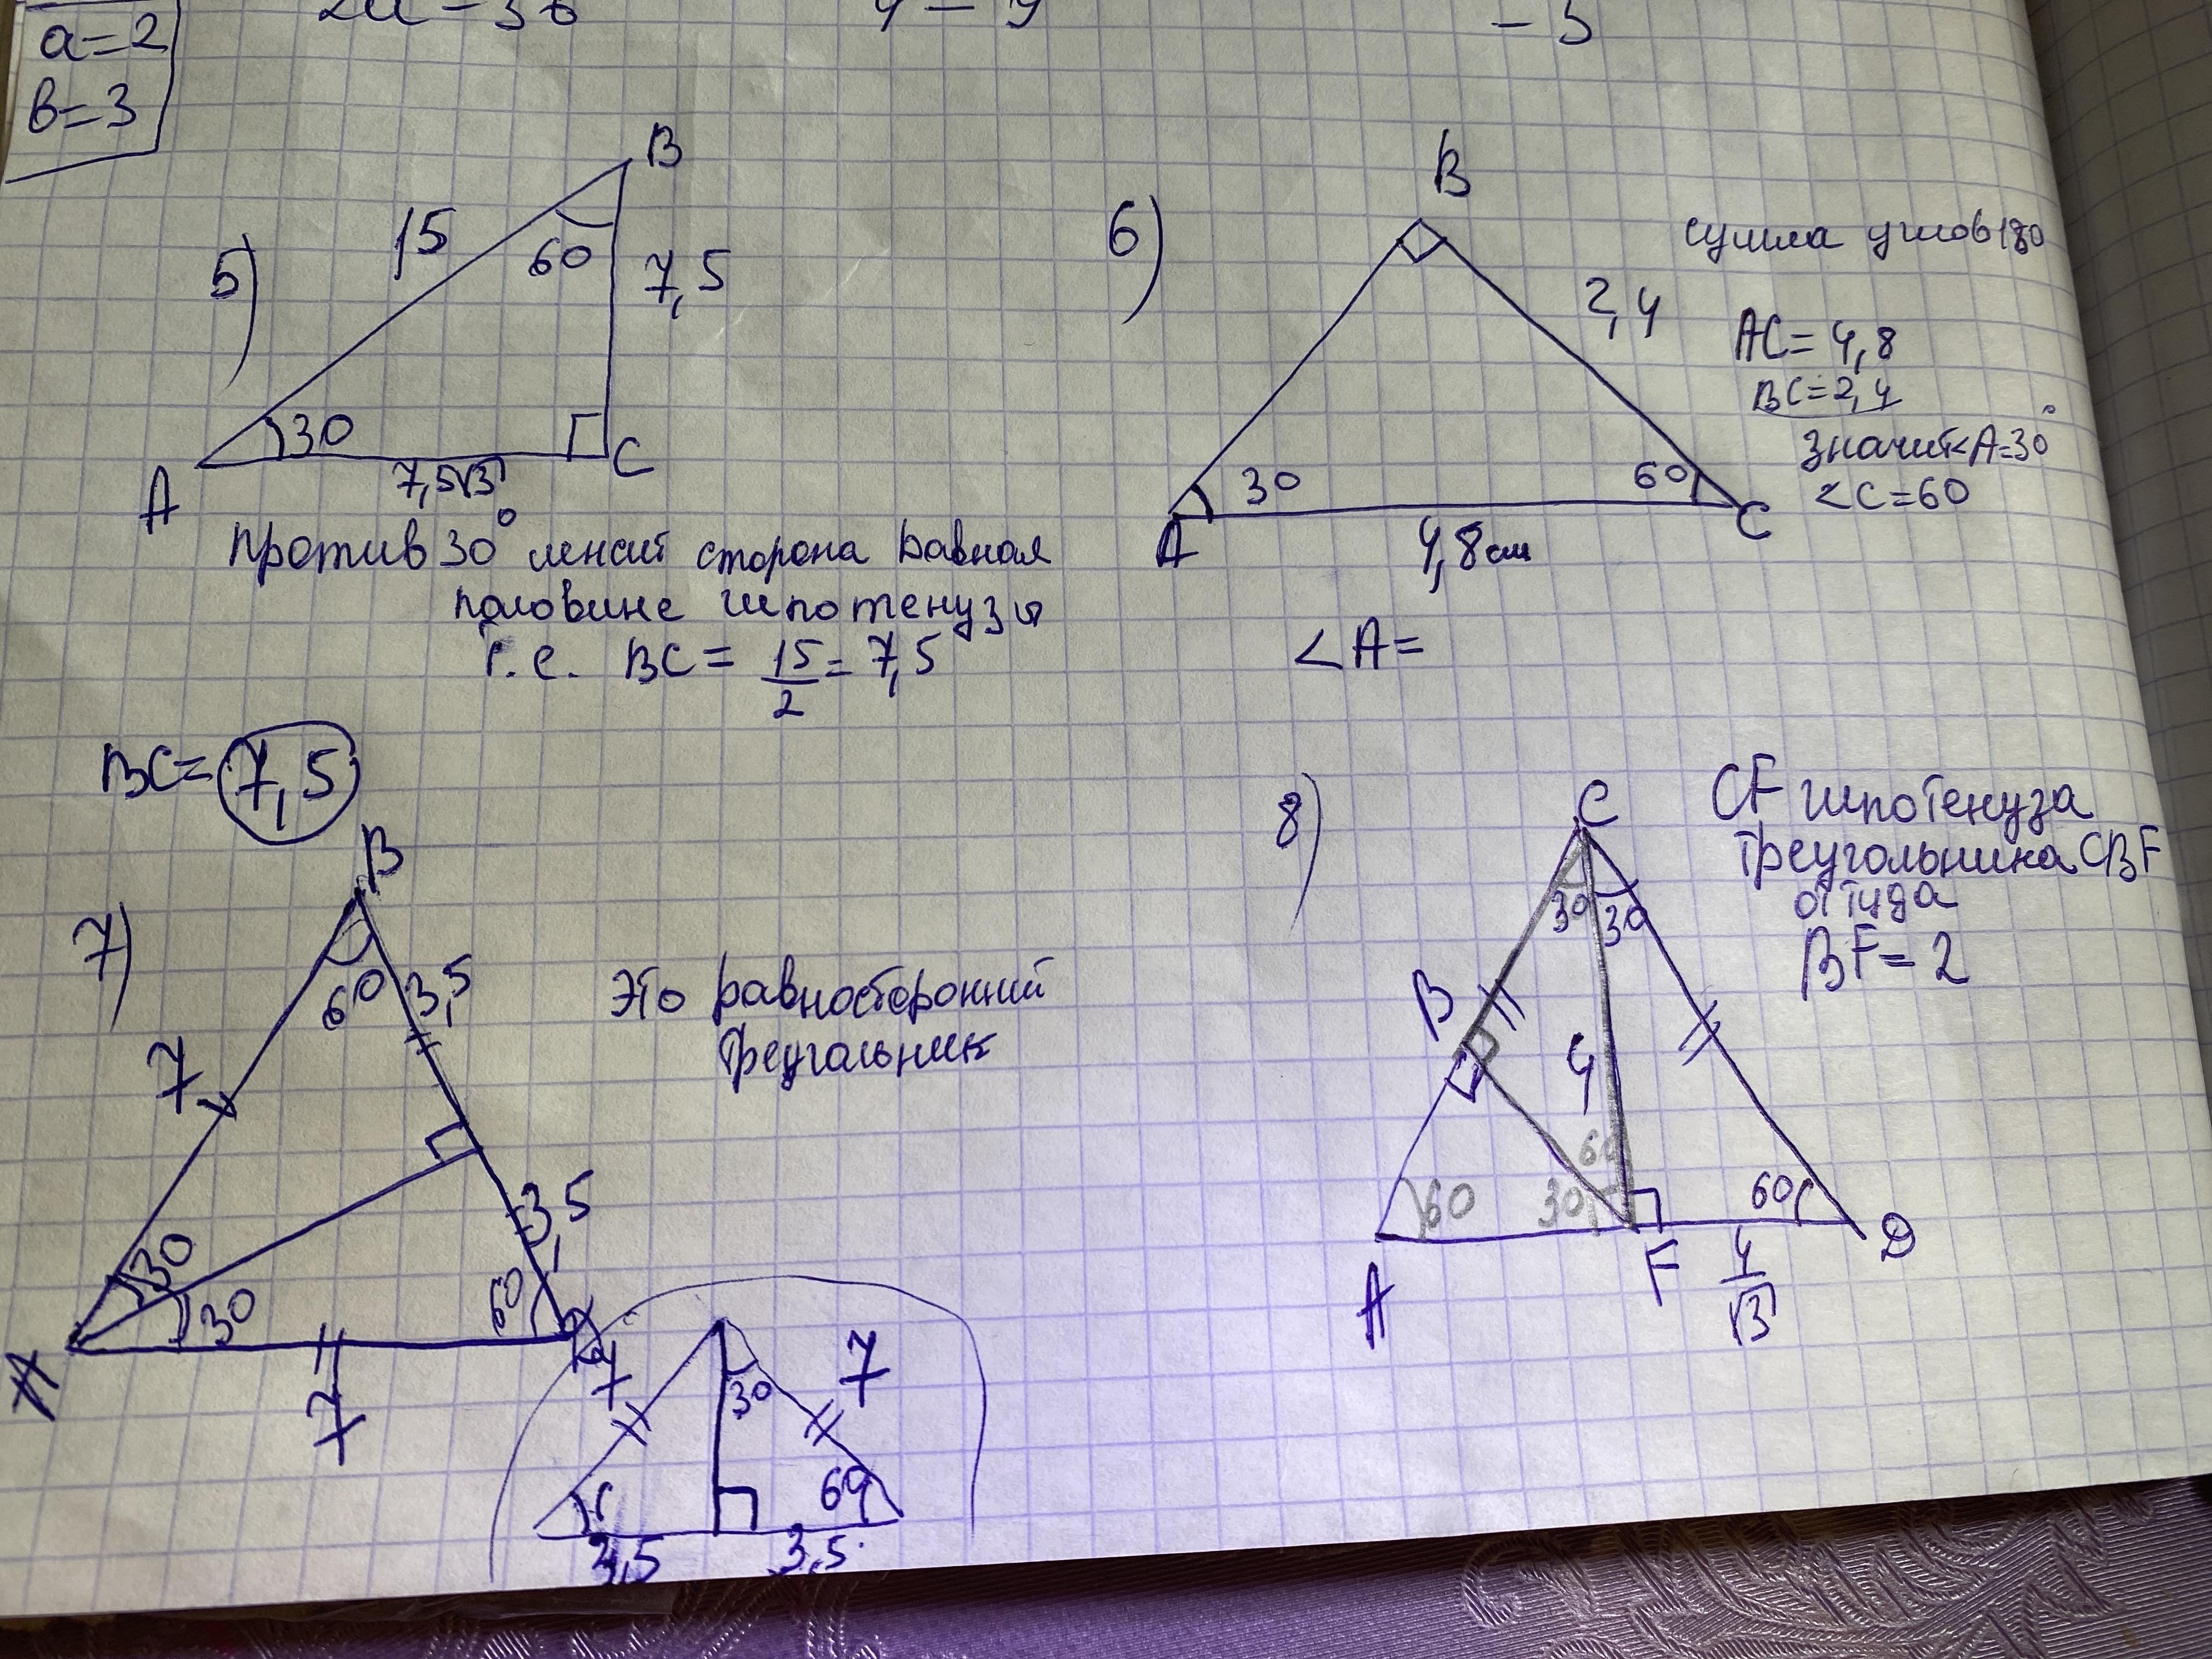 a=2
в=3
5)
B
15
60
7,5
30
A
C
7,5√3
против 30° лежит сторона равная
половине гипотенузы
т.е. BC = 15/2 = 7,5
BC = 7,5
6)
B
сумма углов 180
2,4
AC = 4,8
BC = 2,4
значит <A=30°
<C=60
30
60
A
C
4,8 см
<A=
7)
B
60
3,5
7
Это равносторонний
треугольник
3,5
30
30
60
A
7
7
30
7
60
3,5
3,5
8)
C
CF гипотенуза
треугольника CBF
оттуда
BF = 2
30
30
B
4
60
60
30
60
A
F
D
4/√3